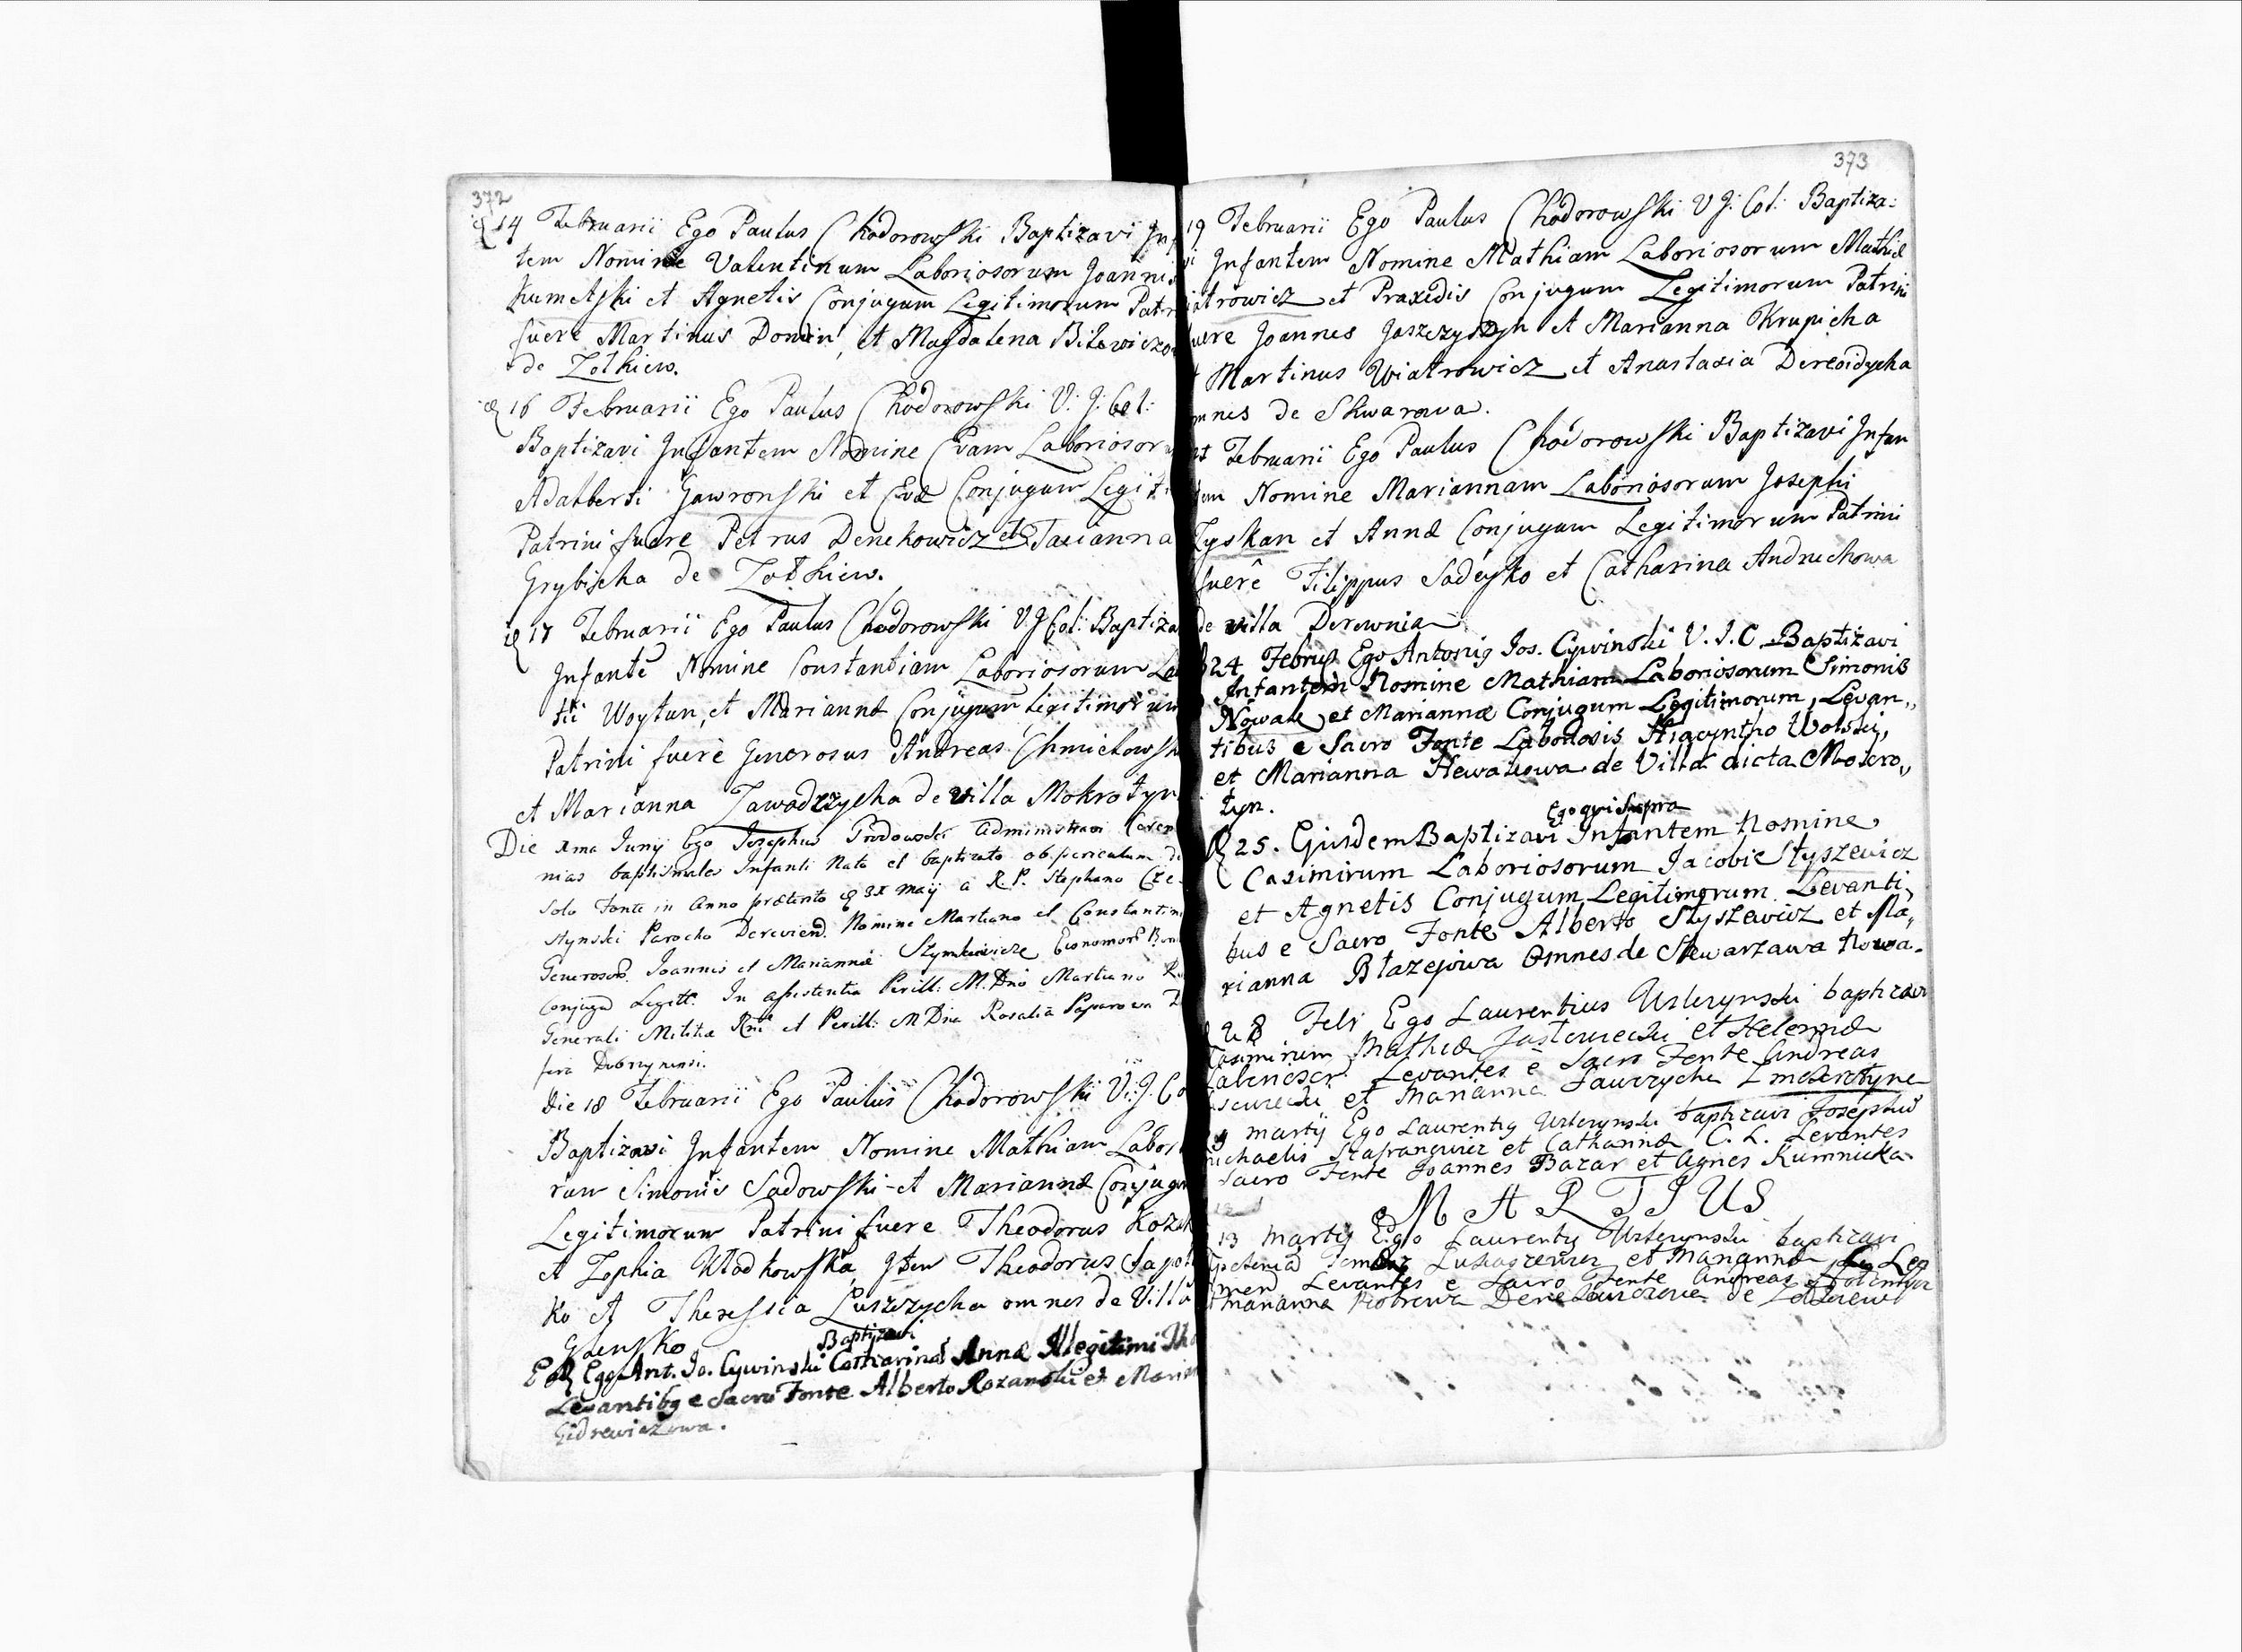 372
14 Februarii Ego Paulus Chodorowski Baptizavi Inf
tem Nomine Valentinum Laboriosorum Joannis
Kumetski et Agnetis Conjugum Legitimorum Patr
fuere Martinus Domin et Magdalena Bilewiczo
de Zolkiew.
16 Februarii Ego Paulus Chodorowski V: J: Col:
Baptizavi Infantem Nomine Evam Laboriosor
Adalberti Gawronski et Evæ Conjugum Legiti
Patrini fuere Petrus Denekowicz et Taxianna
Grybicha de Zołkiew.
17 Februarii Ego Paulus Chodorowski V.J Col: Baptiza
Infantē Nomine Constantiam Laboriosorum La
tii Woytun, et Mariannæ Conjugum legitimorum
Patrini fuere Generosus Andreas Chmielowsk
et Marianna Zawadzzycha de villa Mokrotyn
Die 1ma Junij Ego Josephus Administravi Cerem
nias baptismales Infanti Nata et baptizato ob periculum de
solo Fonte in Anno prætento 31 maij a R. P. Stephano Cze
stynski Parocho Dereviend. Nomine Martiano et Constantin
Generosor. Joannis et Mariannæ Szymkiewicze Economor
Conjugū Legitt: In assistentia Perill: M. Dno Martiano
Generali Militiæ et Perill: M Dna Rosalia Paparowa
fera Dobrzynensi.
Die 18 Februarii Ego Paulus Chodorowski V: J. Co
Baptizavi Infantem Nomine Mathiam Labor
rum Simonis Sadowski et Mariannæ Conjugu
Legitimorum Patrini fuere Theodorus Kozak
et Zophia Wlodkowska, Item Theodorus Sapot
ko et Theressia Luszczycha omnes de Villa
Glensko
Baptizavi
Ego Ant. Jo. Cywinski Catharinā Annæ Illegitimi
Levantibg e Sacro Fonte Alberto Rozanski et Marian
Gidrewiczowa.
373
19 Februarii Ego Paulus Chodorowski V J: Col: Baptiza:
vi Infantem Nomine Mathiam Laboriosorum Mathiæ
iatrowicz et Praxedis Conjugum Legitimorum Patrini
uere Joannes Jaszczyszyn et Marianna Krupicha
t Martinus Wiatrowicz et Anastasia Derewidycha
mnes de Skwarowa.
Februarii Ego Paulus Chodorowski Baptizavi Infan
tem Nomine Mariannam Laboriosorum Josephi
Zyskan et Annæ Conjugum Legitimorum Patrini
fuerê Filippus Sadeyko et Catharina Andruchowa
de villa Derewnia
24 Februa Ego Antonig Jos. Cywinski V. J. C Baptizavi
Infantem Nomine Mathiam Laboriosorum Simonis
Nowak et Mariannæ Conjugum Legitimorum, Levan,,
tibus e Sacro Fonte Laboriosis Hiacyntho Wolski,
et Marianna Nowakowa de Villa dicta Mokro,,
tyn.
Ego qui Supra
25. Ejusdem Baptizavi Infantem Nomine,
Casimirum Laboriosorum Jacobi Styszewicz
et Agnetis Conjugum Legitimorum Levanti,
bus e Sacro Fonte Alberto Styszewicz et Ma,,
rianna Błazejowa Omnes de Skwarzawa Nowa.
28 Feb Ego Laurentius Usterzynski baptizavi
Casimirum Mathiæ Jastrzecki et Helennæ
Laborioser. Levantes è Sacro Fonte Andreas
et Marianna Sawczycha Z mokrotyna
9 martij Ego Laurentig Usterzynski baptizavi Josephū
Michaelis Szafrangwiez et Catharinæ C. L. Levantes
Sacro Fonte Joannes Bazar et Agnes Rumnicka
MARTIUS
13 martij Ego Laurentig Usterzynski baptizavi
Lukaszewicz et Mariannæ
Levantes e Sacro Fonte Andreas
Marianna Piotrowa de Zolkiew